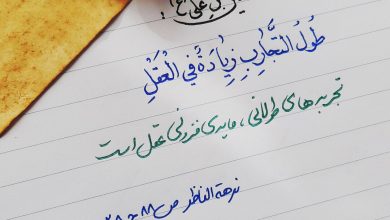 بن علی (ع):
طُولُ التَّجَارِبِ زِيَادَةٌ فِي الْعَقْلِ
تجربه های طولانی، مایه ی فزونی عقل است
نزهة الناظر ص ۸۸